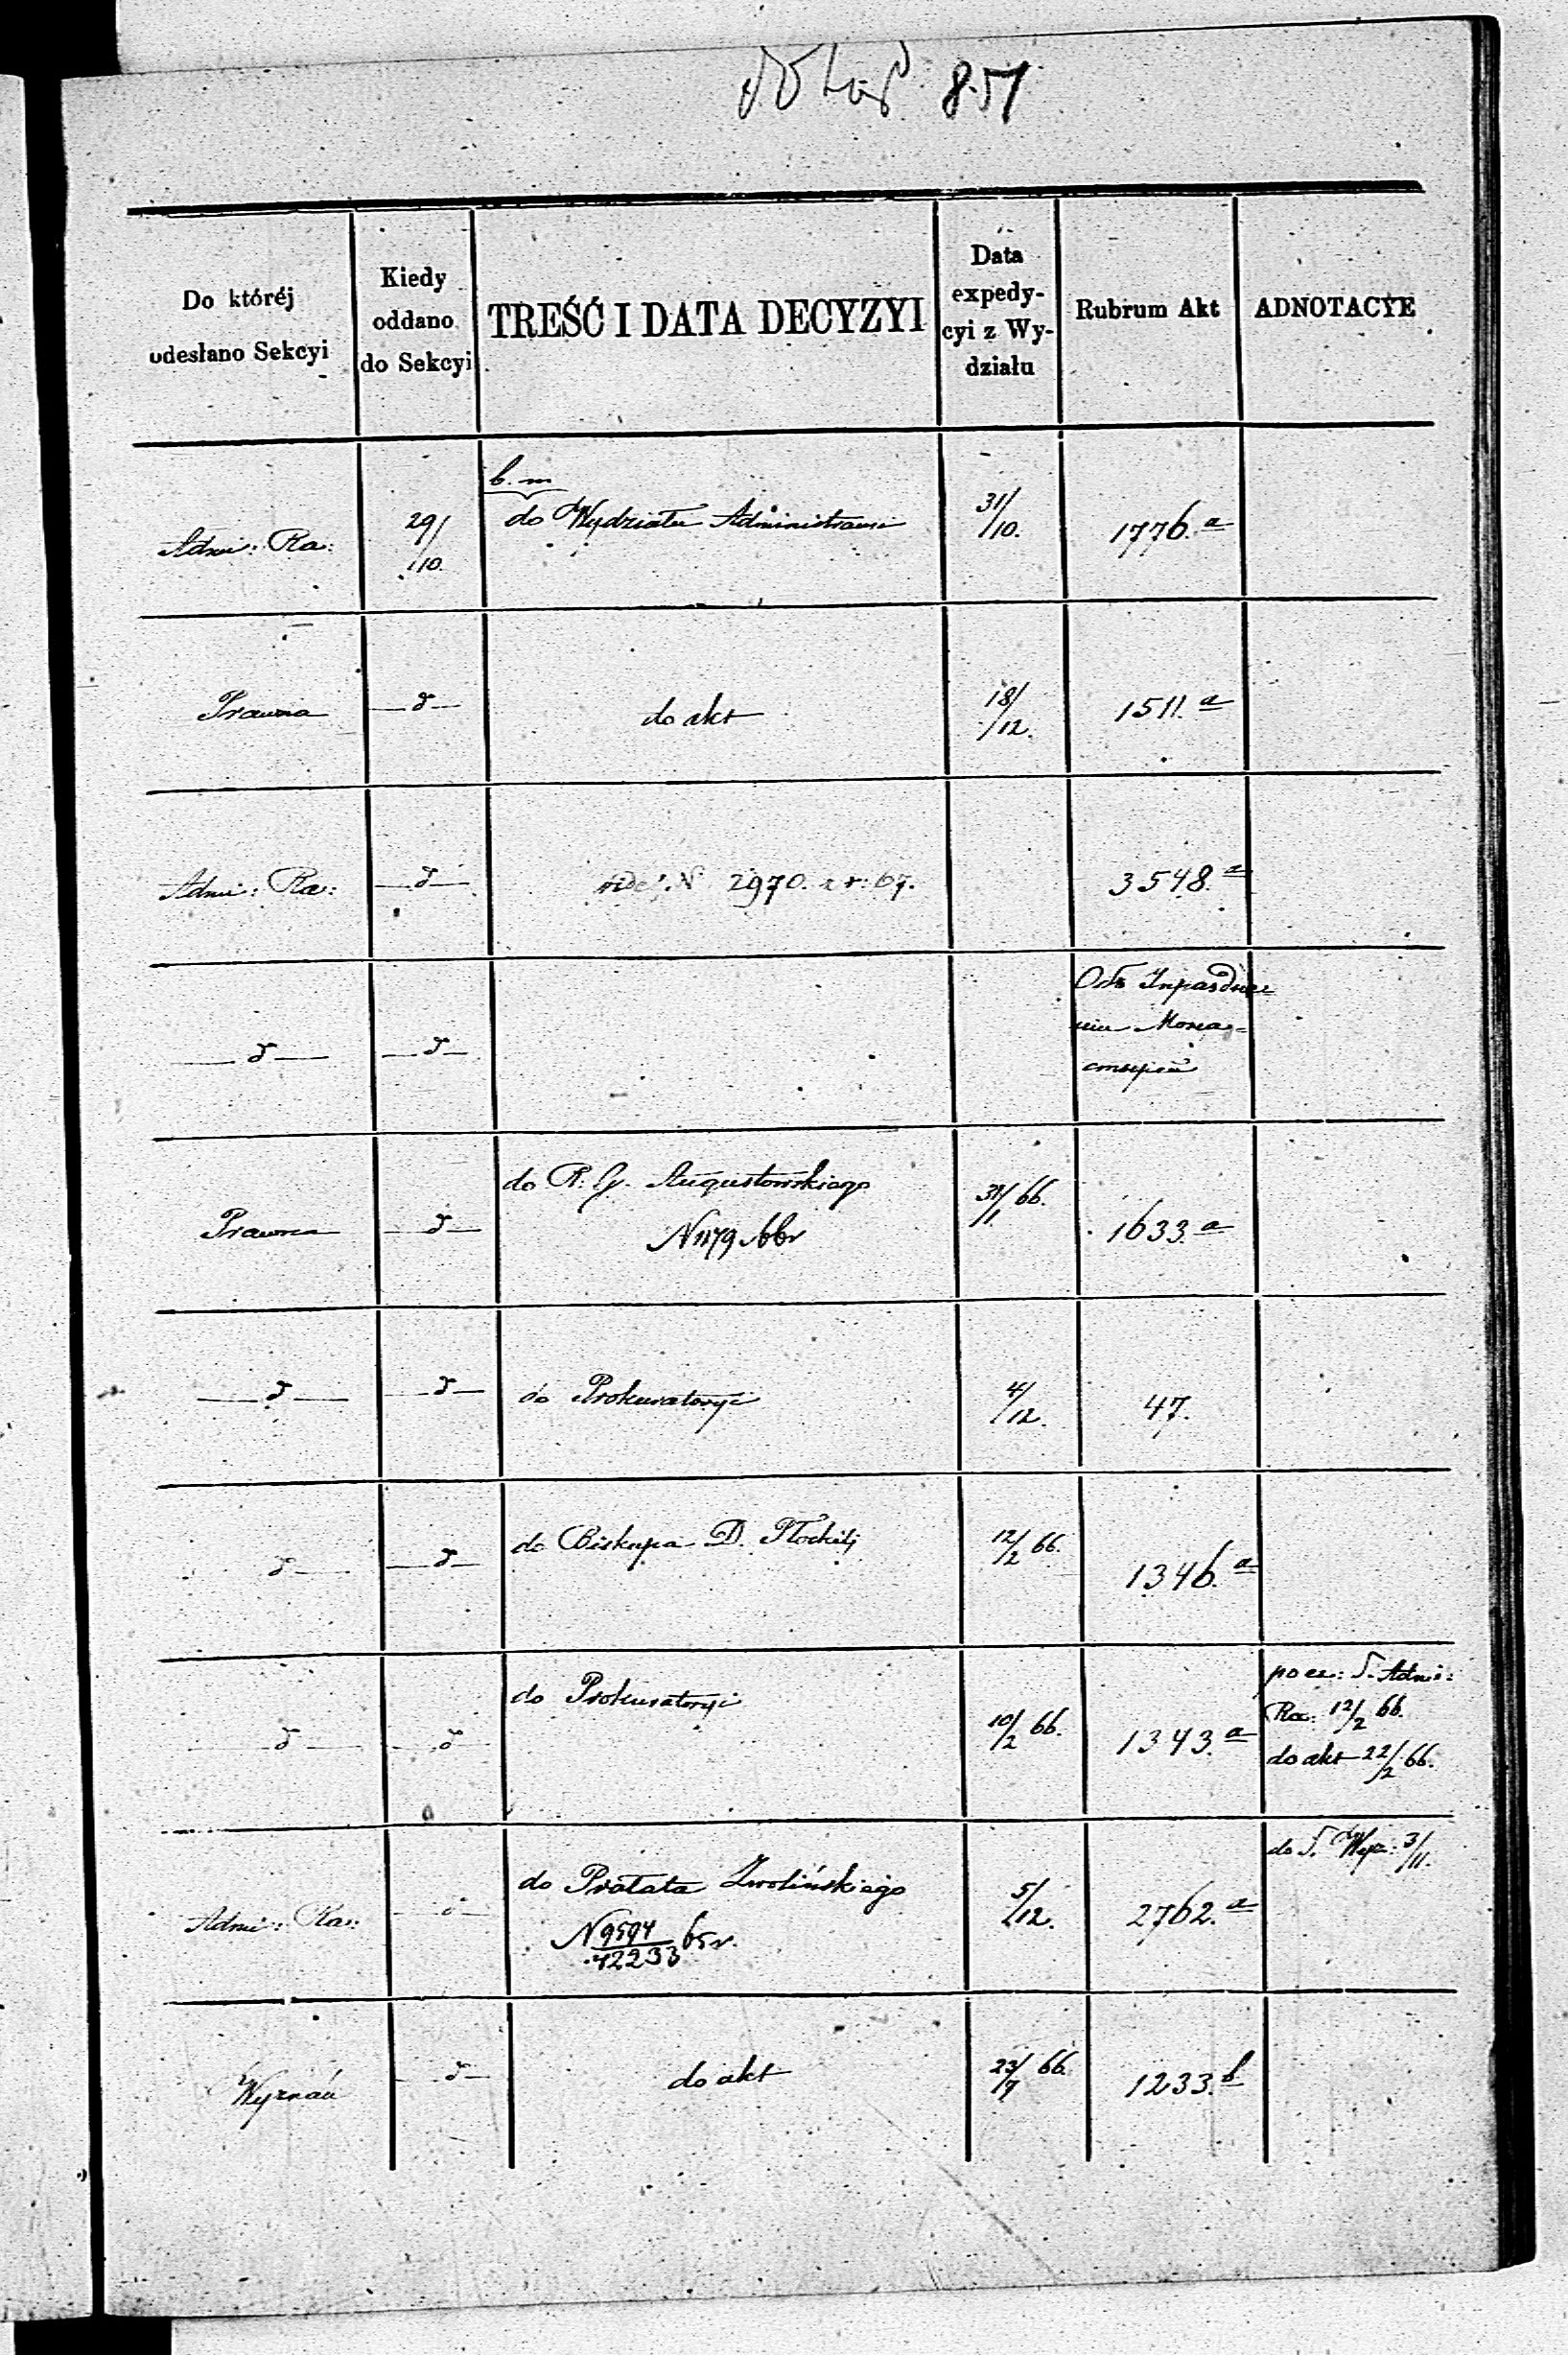 851
Do któréj
odesłano Sekcyi
Kiedy
oddano
do Sekcyi
TREŚĆ I DATA DECYZYI
Data
expedy-
cyi z Wy-
działu
Rubrum Akt
ADNOTACYE
Admi: Ra:
29/10.
b. m
do Wydziału Administracii
31/10.
1776.a
Prawna
—d—
do akt
18/12.
1511.a
Admi: Ra:
—d—
vide N 2970. z r: 67.
3548.a
—d—
—d—
Объ Упраздне=
нiи Мона=
стырей
Prawna
—d—
do R. G. Augustowskiego
N 1179 66r
31/1 66.
1633.a
—d—
—d—
do Prokuratoryi
4/12.
47.
d—
—d—
do Biskupa D. Płockiéj
12/2 66.
1346.a
—d—
—d—
do Prokuratoryi
10/2 66.
1343.a
po ex: S. Admi:
Ra: 12/2 66.
do akt 22/2 66.
Admi: Ra:
—d—
do Prałata Zwolińskiego
N 9594/42233 65r.
5/12.
2762.a
do S. Wyz: 3/11.
Wyznań
—d—
do akt
23/7 66.
1233.b